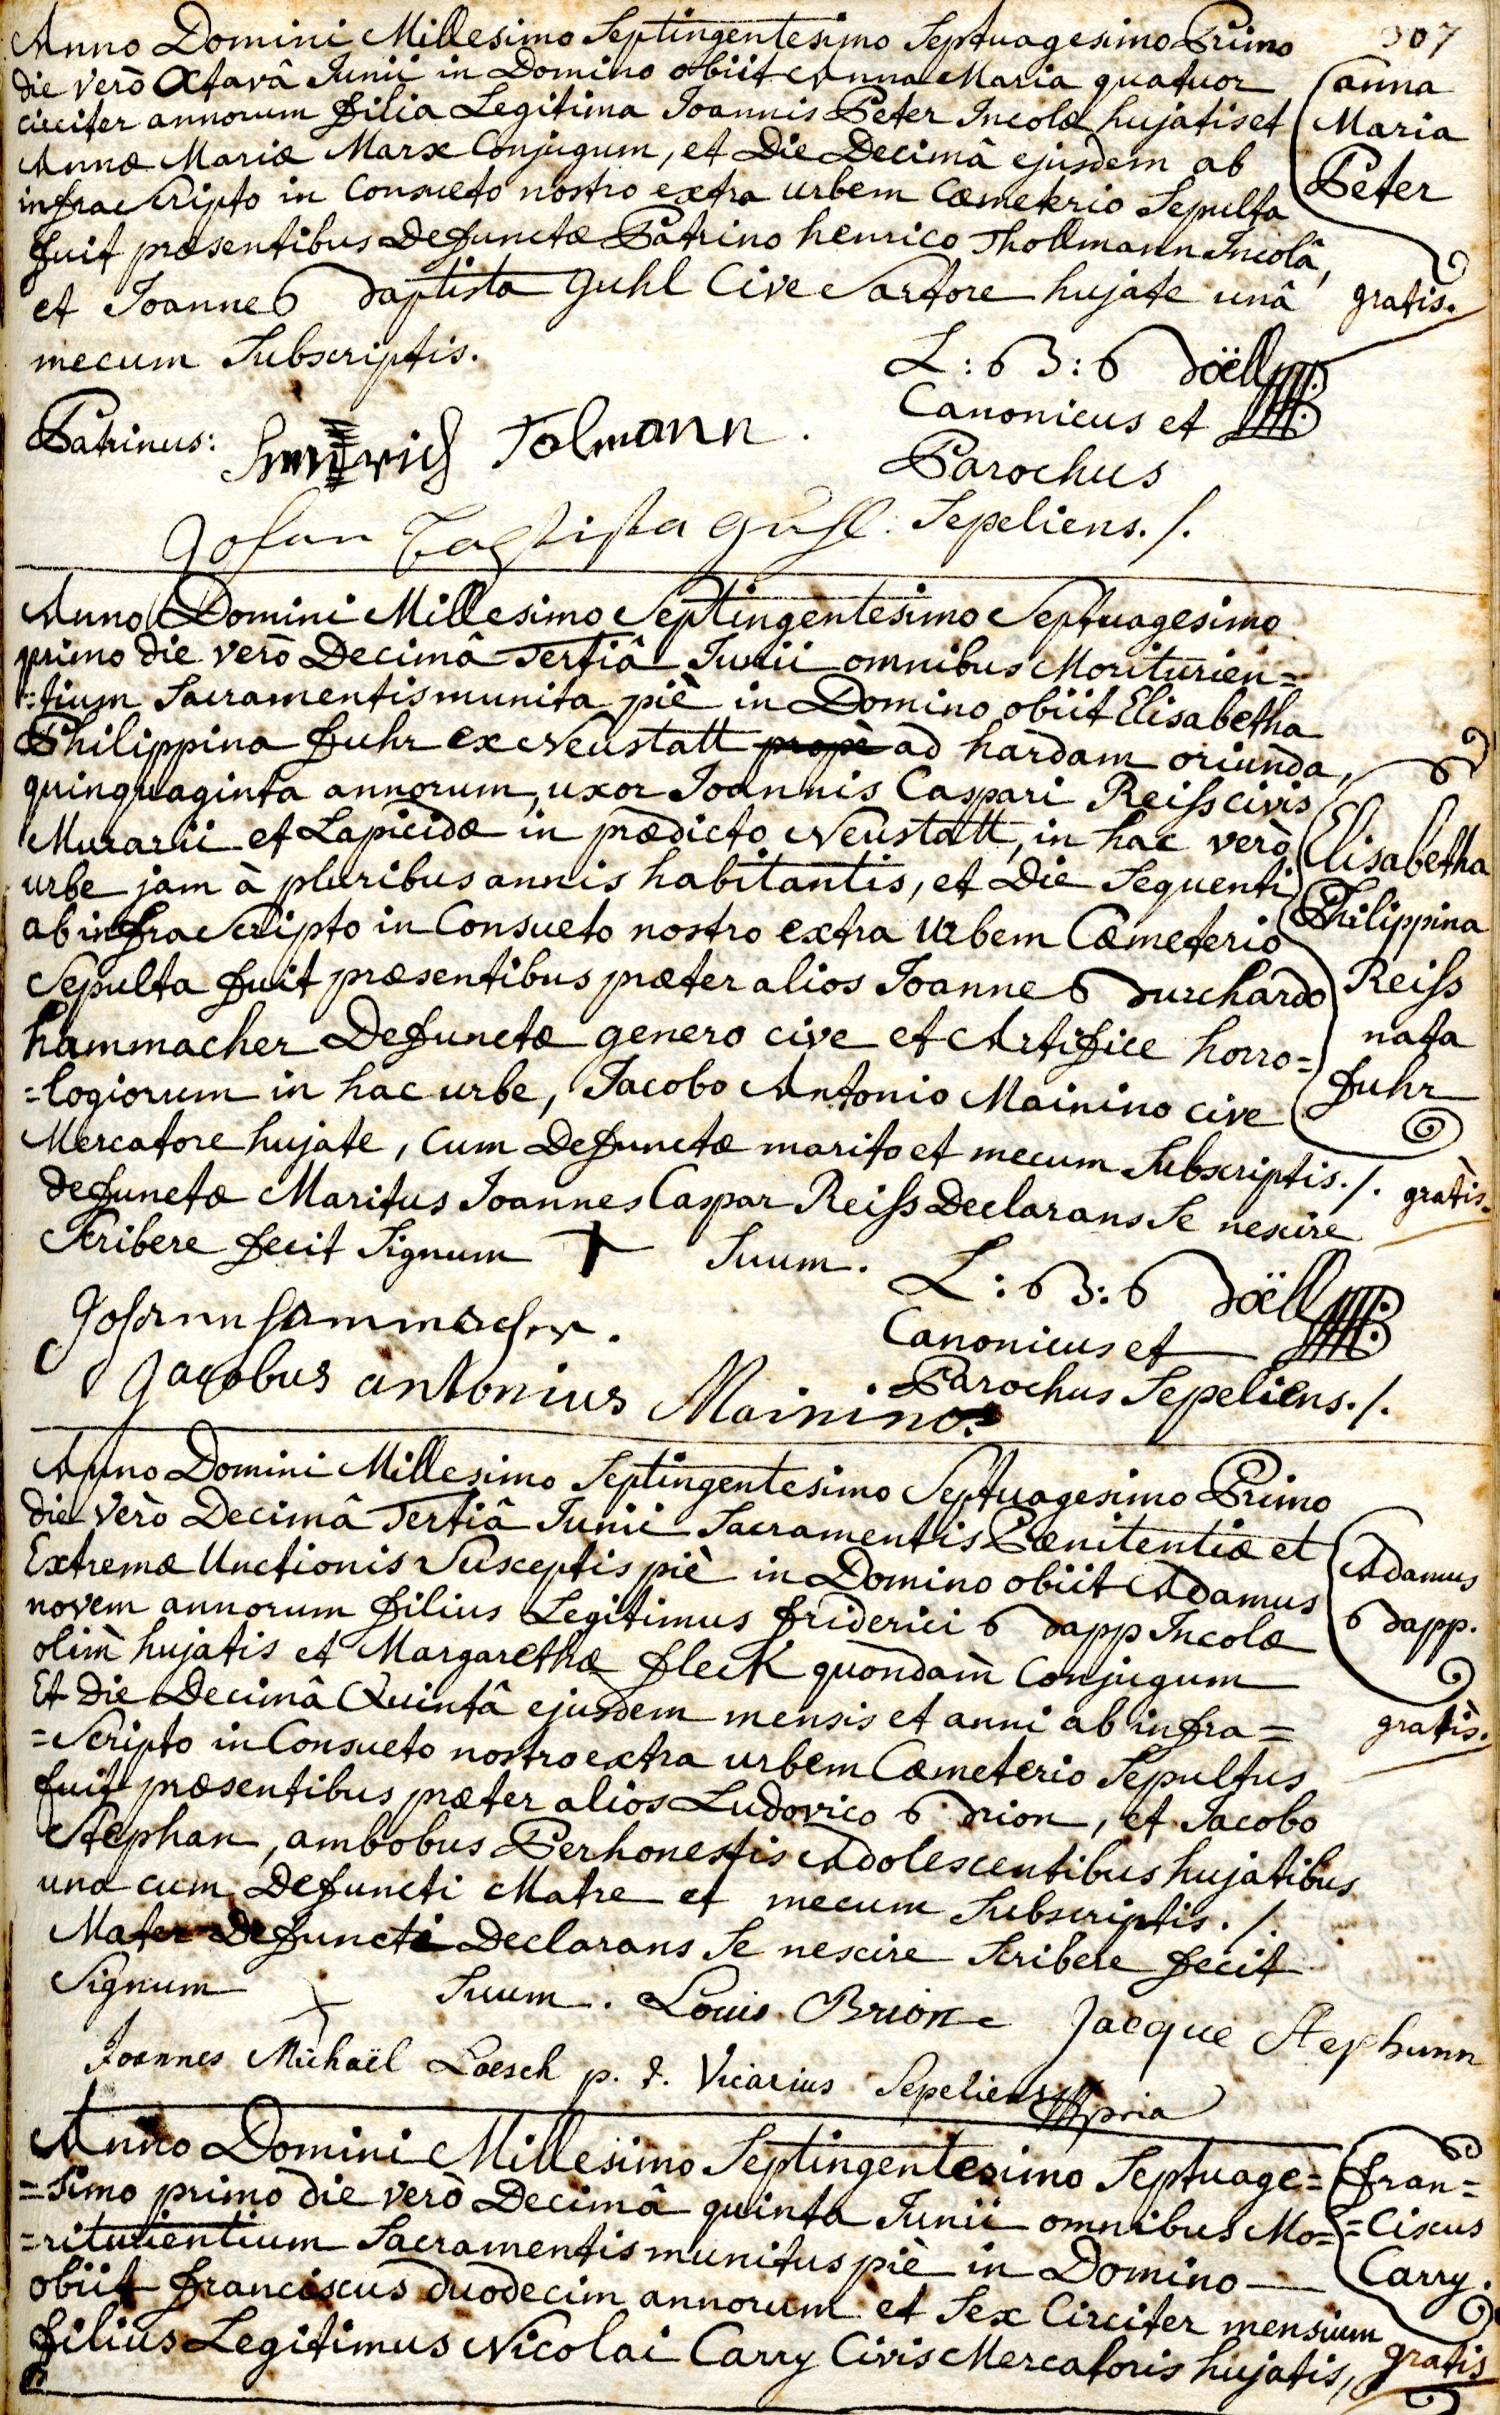 307
Anno Domini Millesimo Septingentesimo Septuagesimo Primo
die verò Octavâ Junii in Domino obiit Anna Maria quatuor
circiter annorum filia Legitima Joannis Peter Incolæ hujatis et
Annæ Mariæ Marx Conjugum, et Die Decimâ ejusdem ab
infrascripto in Consueto nostro extra urbem Cœmeterio Sepulta
fuit præsentibus Defunctæ Patrino henrico Thollmann Incolâ,
et Joanne Baptista Guhl Cive Sartore hujate unâ
mecum Subscriptis.
Anna
Maria
Peter
gratis.
L: B: B Boëll
Canonicus et
Parochus
Sepeliens./.
Patrinus: Tolmann.
Johan Baptista Guhl
Anno Domini Millesimo Septingentesimo Septuagesimo
primo die verò Decimâ Tertiâ Junii omnibus Moriturien=
=tium Sacramentis munita piè in Domino obiit Elisabetha
Philippina Fuhr ex Neustatt prope ad hardam oriunda,
quinquaginta annorum, uxor Joannis Caspari Reiss civis
Murarii et Lapicidæ in prædicto Neustatt, in hac verò
urbe jam à pluribus annis habitantis, et Die Sequenti
ab infrascripto in Consueto nostro extra Urbem Cœmeterio
Sepulta fuit præsentibus præter alios Joanne Burchardo
hammacher Defunctæ genero cive et Artifice horro=
=logiorum in hac urbe, Jacobo Antonio Mainino cive
Mercatore hujate, cum Defunctæ marito et mecum Subscriptis./.
defunctæ Maritus Joannes Caspar Reiss Declarans Se nescire
Scribere fecit Signum + Suum.
Elisabetha
Philippina
Reiss
nata
fuhr
gratis.
L: B: B Boëll
Canonicus et
Parochus Sepeliens./.
Johann hammacher.
Jacobus antonius Mainino
Anno Domini Millesimo Septingentesimo Septuagesimo Primo
die verò Decimâ Tertiâ Junii Sacramentis Pœnitentiæ et
Extremæ Unctionis Susceptis piè in Domino obiit Adamus
novem annorum filius Legitimus friderici Bapp Incolæ
olim hujatis et Margarethæ fleck quondam Conjugum
Et die Decimâ Quintâ ejusdem mensis et anni ab infra=
=Scripto in Consueto nostro extra urbem Cœmeterio Sepultus
fuit præsentibus præter alios Ludovico Brion, et Jacobo
Stephan, ambobus Perhonestis Adolescentibus hujatibus
una cum Defuncti Matre et mecum Subscriptis./.
Mater Defuncti Declarans Se nescire Scribere fecit
Signum + Suum. Louis Brion Jacque Stephann
Adamus
Bapp.
gratis.
Joannes Michaël Loesch p. t. Vicarius Sepeliens mpria
Anno Domini Millesimo Septingentesimo Septuage=
=simo primo die verò Decimâ quinta Junii omnibus Mo=
=riturientium Sacramentis munitus piè in Domino
obiit franciscus duodecim annorum et Sex Circiter mensium
filius Legitimus Nicolai Carry Civis Mercatoris hujatis,
fran=
=Ciscus
Carry.
gratis